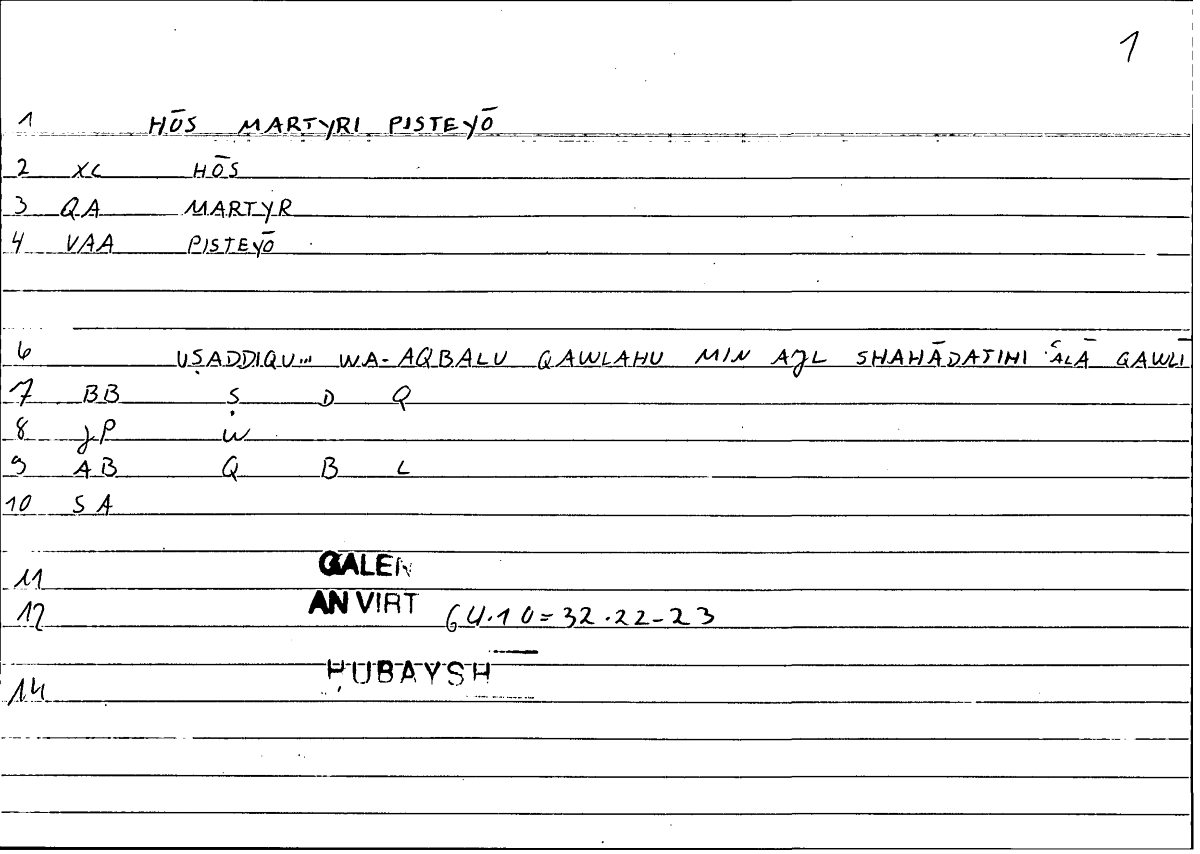 1
1 HŌS MARTYRI PISTEYŌ
2 XC HŌS
3 QA MARTYR
4 VAA PISTEYŌ
6 UṢADDIQU... WA-AQBALU QAWLAHU MIN AJL SHAHĀDATIHI ʿALĀ QAWLĪ
7 BB Ṣ D Q
8 JP W
9 AB Q B L
10 SA
11 GALEN
12 AN VIRT 64.10=32.22-23
14 ḤUBAYSH